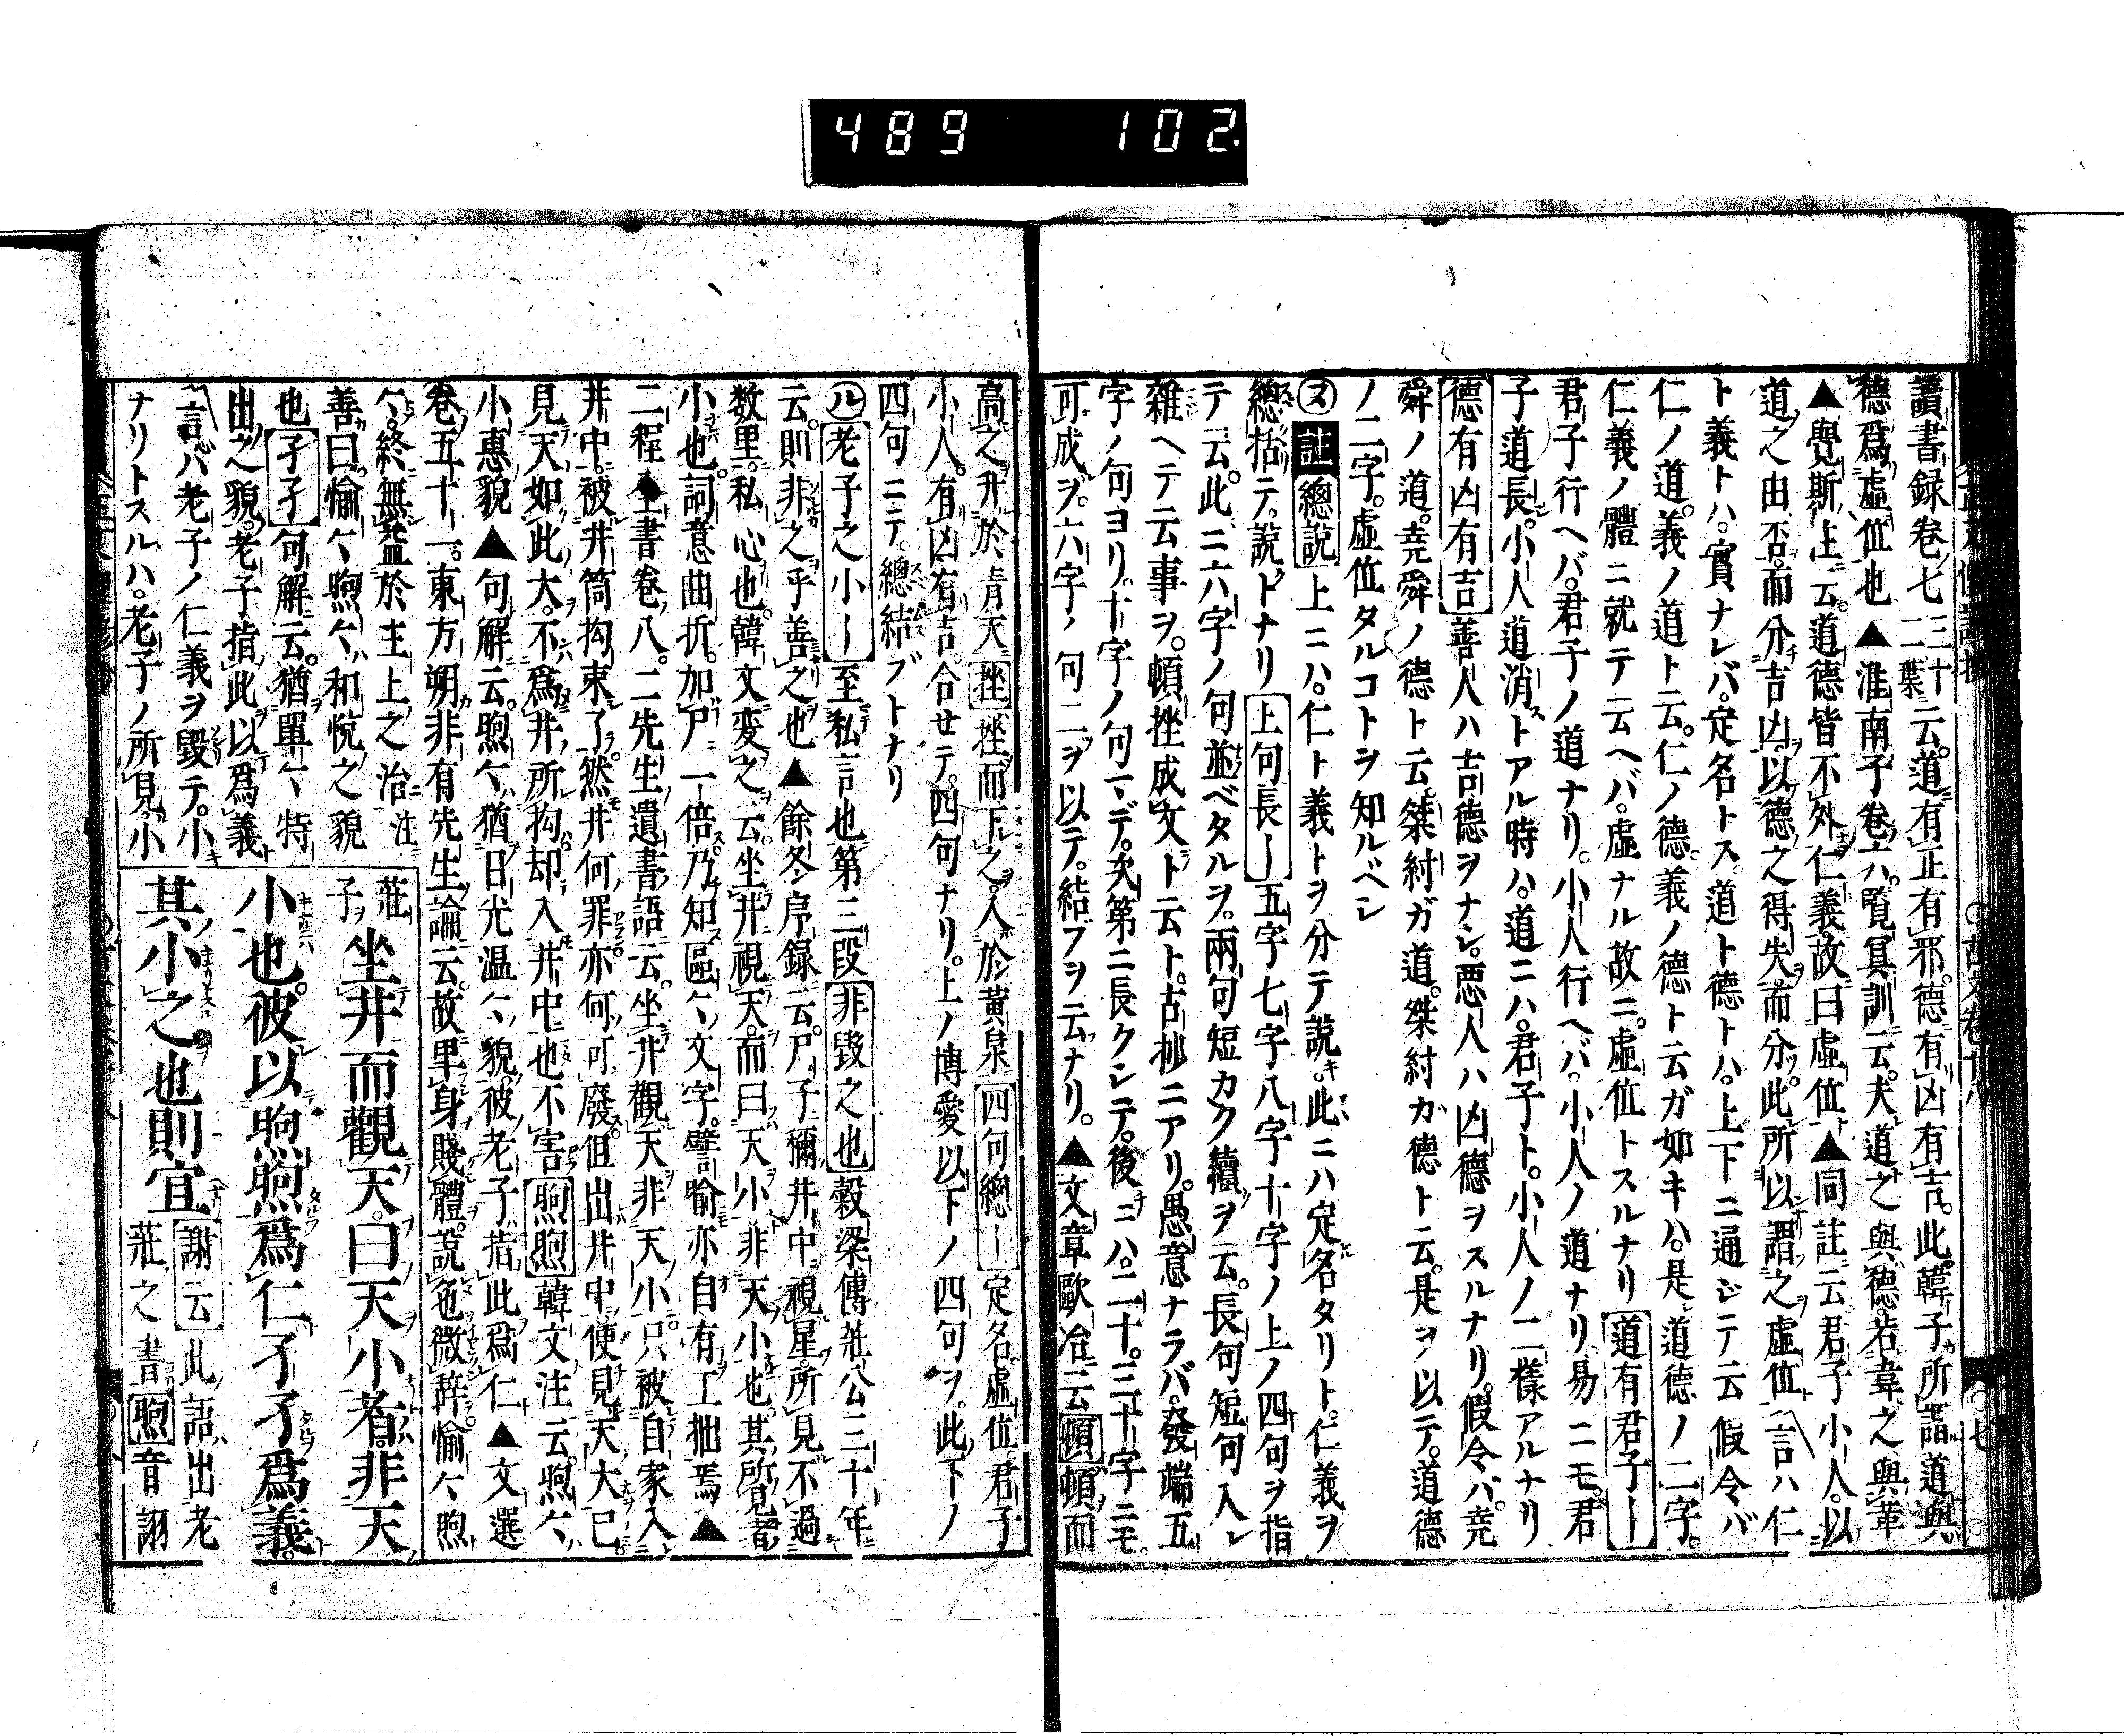 489 102
讀書録卷七三十二葉云。道有正有邪。德有凶有吉。此韓子所謂道與
德爲虛位也▲淮南子卷六。覽冥訓云。夫道之與德。若韋之與革
▲覺斯上云。道德皆不外仁義。故曰虛位▲同註云君子小人。以
道之由否。而分吉凶。以德之得失而分。此所以謂之虛位言ハ仁
ト義トハ。實ナレバ。定名トス道ト德トハ。上下ニ通ジテ云假令バ
仁ノ道。義ノ道ト云。仁ノ德。義ノ德ト云ガ如キハ。是道德ノ二字。
仁義ノ體ニ就テ云ヘバ。虛ナル故ニ。虛位トスルナリ道有君子一
君子行ヘバ。君子ノ道ナリ。小人行ヘバ。小人ノ道ナリ易ニモ。君
子道長。小人道消トアル時ハ。道ニハ。君子ト。小人ノ二樣アルナリ
德有凶有吉善人ハ吉德ヲナシ。惡人ハ凶德ヲスルナリ。假令バ。堯
舜ノ道。堯舜ノ德ト云。桀紂ガ道。桀紂ガ德ト云。是ヲ以テ。道德
ノ二字。虛位タルコトヲ知ルベシ
ヌ註總說上ニハ。仁ト義トヲ分テ說キ。此ニハ定名タリト。仁義ヲ
總括テ。說トナリ上句長一五字七字八字十字ノ上ノ四句ヲ指
テ云。此ニ六字ノ句並ベタルヲ。兩句短カク續ヲ云。長句短句入レ
雜ヘテ云事ヲ。頓挫成文ト云ト。古抄ニアリ。愚意ナラバ。發端五
字ノ句ヨリ。十字ノ句マデ。次第ニ長クシテ。後ニハ。二十。三十字ニモ
可成ヲ。六字ノ句二ヲ以テ。結ブヲ云ナリ。▲文章歐冶云頓頓而
高之升於青天挫挫而下之。入於黃泉四句總一定名虛位君子
小人。有凶有吉。合セテ。四句ナリ。上ノ博愛以下ノ四句ヲ。此下ノ
四句ニテ。總結ブトナリ
ル老子之小一至私言也第三段非毀之也穀梁傳莊公三十年
云。則非之乎善之也▲餘冬序録云。尸子彌井中視星。所見不過
数里。私心也。韓文变之云。坐井視天。而曰天小非天小也。其所見者
小也。詞意曲折。加尸一倍。乃知區々文字。譬喻亦自有工拙焉▲
二程全書卷八。二先生遺書語云。坐井觀天非天小。只被自家入
井中。被井筒拘束了。然井何罪亦何可廢但出井中便見天大已
見天如此大。不爲井所拘却入井中也不害煦煦韓文注云。煦々
小惠貌▲句解云。煦々猶日光温々貌。彼老子指此爲仁▲文選
卷五十一。東方朔非有先生論云。故卑身賤體。說色微辞。愉々煦
々。終無益於主上之治注
善曰。愉々煦々。和悅之貌
也孑孑句解云。猶單々特
出之貌。老子指此以爲義
言ハ老子ノ仁義ヲ毀テ。小
ナリトスルハ。老子ノ所見。小
莊子坐井而觀天。曰天小者。非天
小也。彼以煦煦爲仁孑孑爲義。
其小之也則宜謝云此語出老莊之書煦音詡